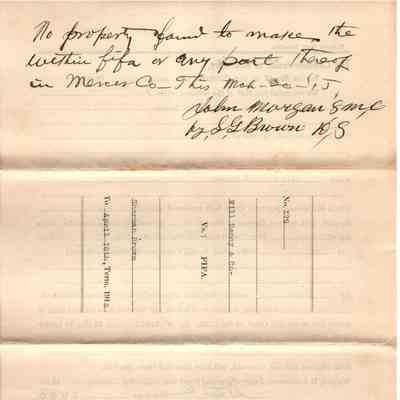 No property found to make the
within fifa or any part thereof
in Mercer Co — This Mch - 20 -
John Morgan S M C
by S G Brown D S
No. 279
Will Denny & Co.
Vs.) FIFA.
Sherman Brown
To April 10th, Term, 191